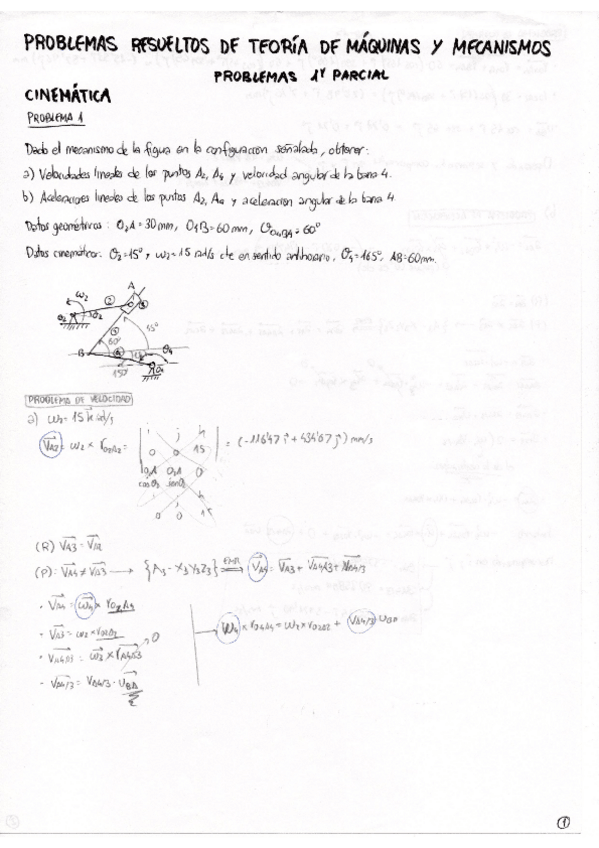 PROBLEMAS RESUELTOS DE TEORÍA DE MÁQUINAS Y MECANISMOS
PROBLEMAS 1er PARCIAL
CINEMÁTICA
PROBLEMA 1
Dado el mecanismo de la figura en la configuración señalada, obtener:
a) Velocidades lineales de los puntos A2, A4 y velocidad angular de la barra 4.
b) Aceleraciones lineales de los puntos A2, A4 y aceleración angular de la barra 4
Datos geométricos: O2A=30mm, O4B=60mm, O4BA=60º
Datos cinemáticos: θ2=15º, ω2=15 rad/s cte en sentido antihorario, θ4=165º, AB=60mm.
A
ω2
2
3
θ2
O2
4
60º
45º
B
θ4
15º
O4
PROBLEMA DE VELOCIDAD
a) ω2=15k rad/s
VA2 = ω2 x rO2A2 = | i j k | 0 0 15 | O2A cosθ2 O2A senθ2 0 | = (-116'47 i + 434'67 j) mm/s
(R) VA3 = VA2
(P): VA4 ≠ VA3 → {A3 - X3Y3Z3} VA4 = VA3 + VA4A3 + VA4/3
· VA4 = ω4 x rO4A4
· VA3 = ω2 x rO2A2
· VA4A3 = ω3 x rA4A3 0
- VA4/3 = VA4/3 · UBA
ω4 x rO4A4 = ω2 x rO2A2 + VA4/3 UBA
1